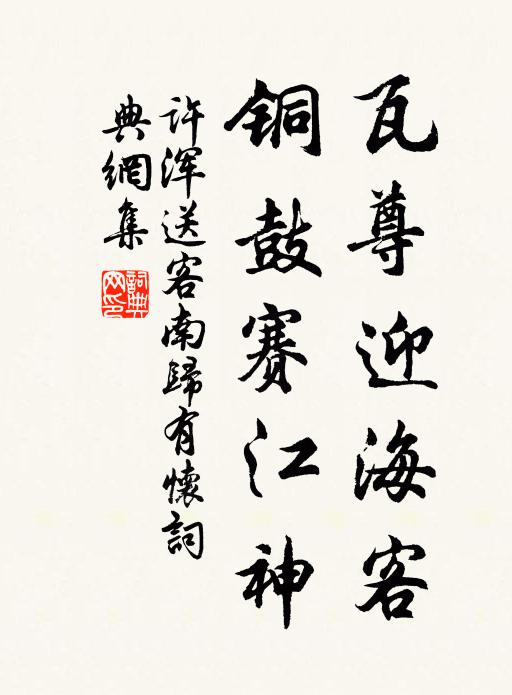 瓦尊迎海客
铜鼓赛江神
许浑送客南歸有懷詞
典網集
詞典網印